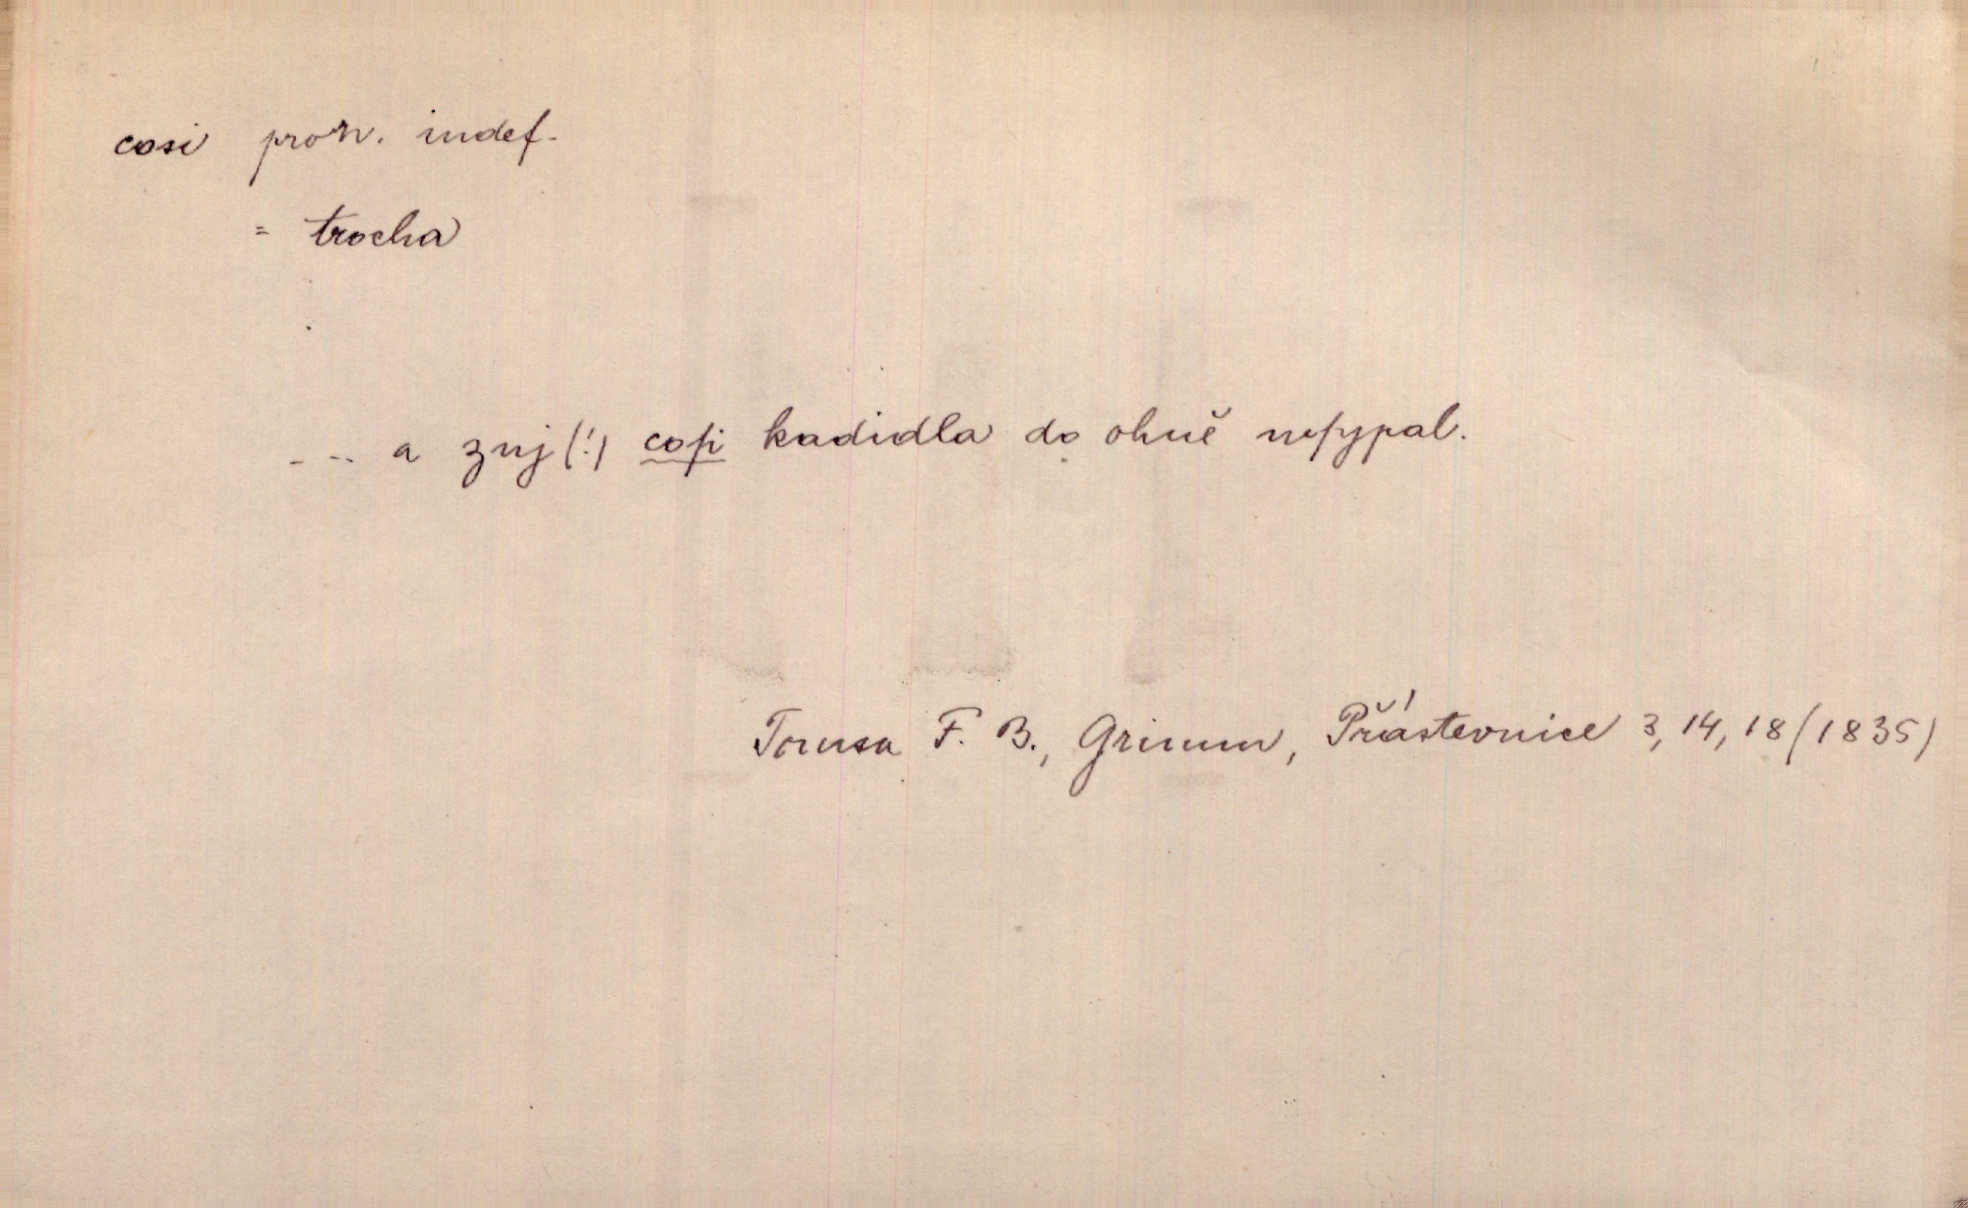 cosi pron. indef.
= trocha
... a zuj (!) coſi kadidla do ohně neſypal.
Tomsa F. B., Grimm, Přástevnice 3, 14, 18 (1835)